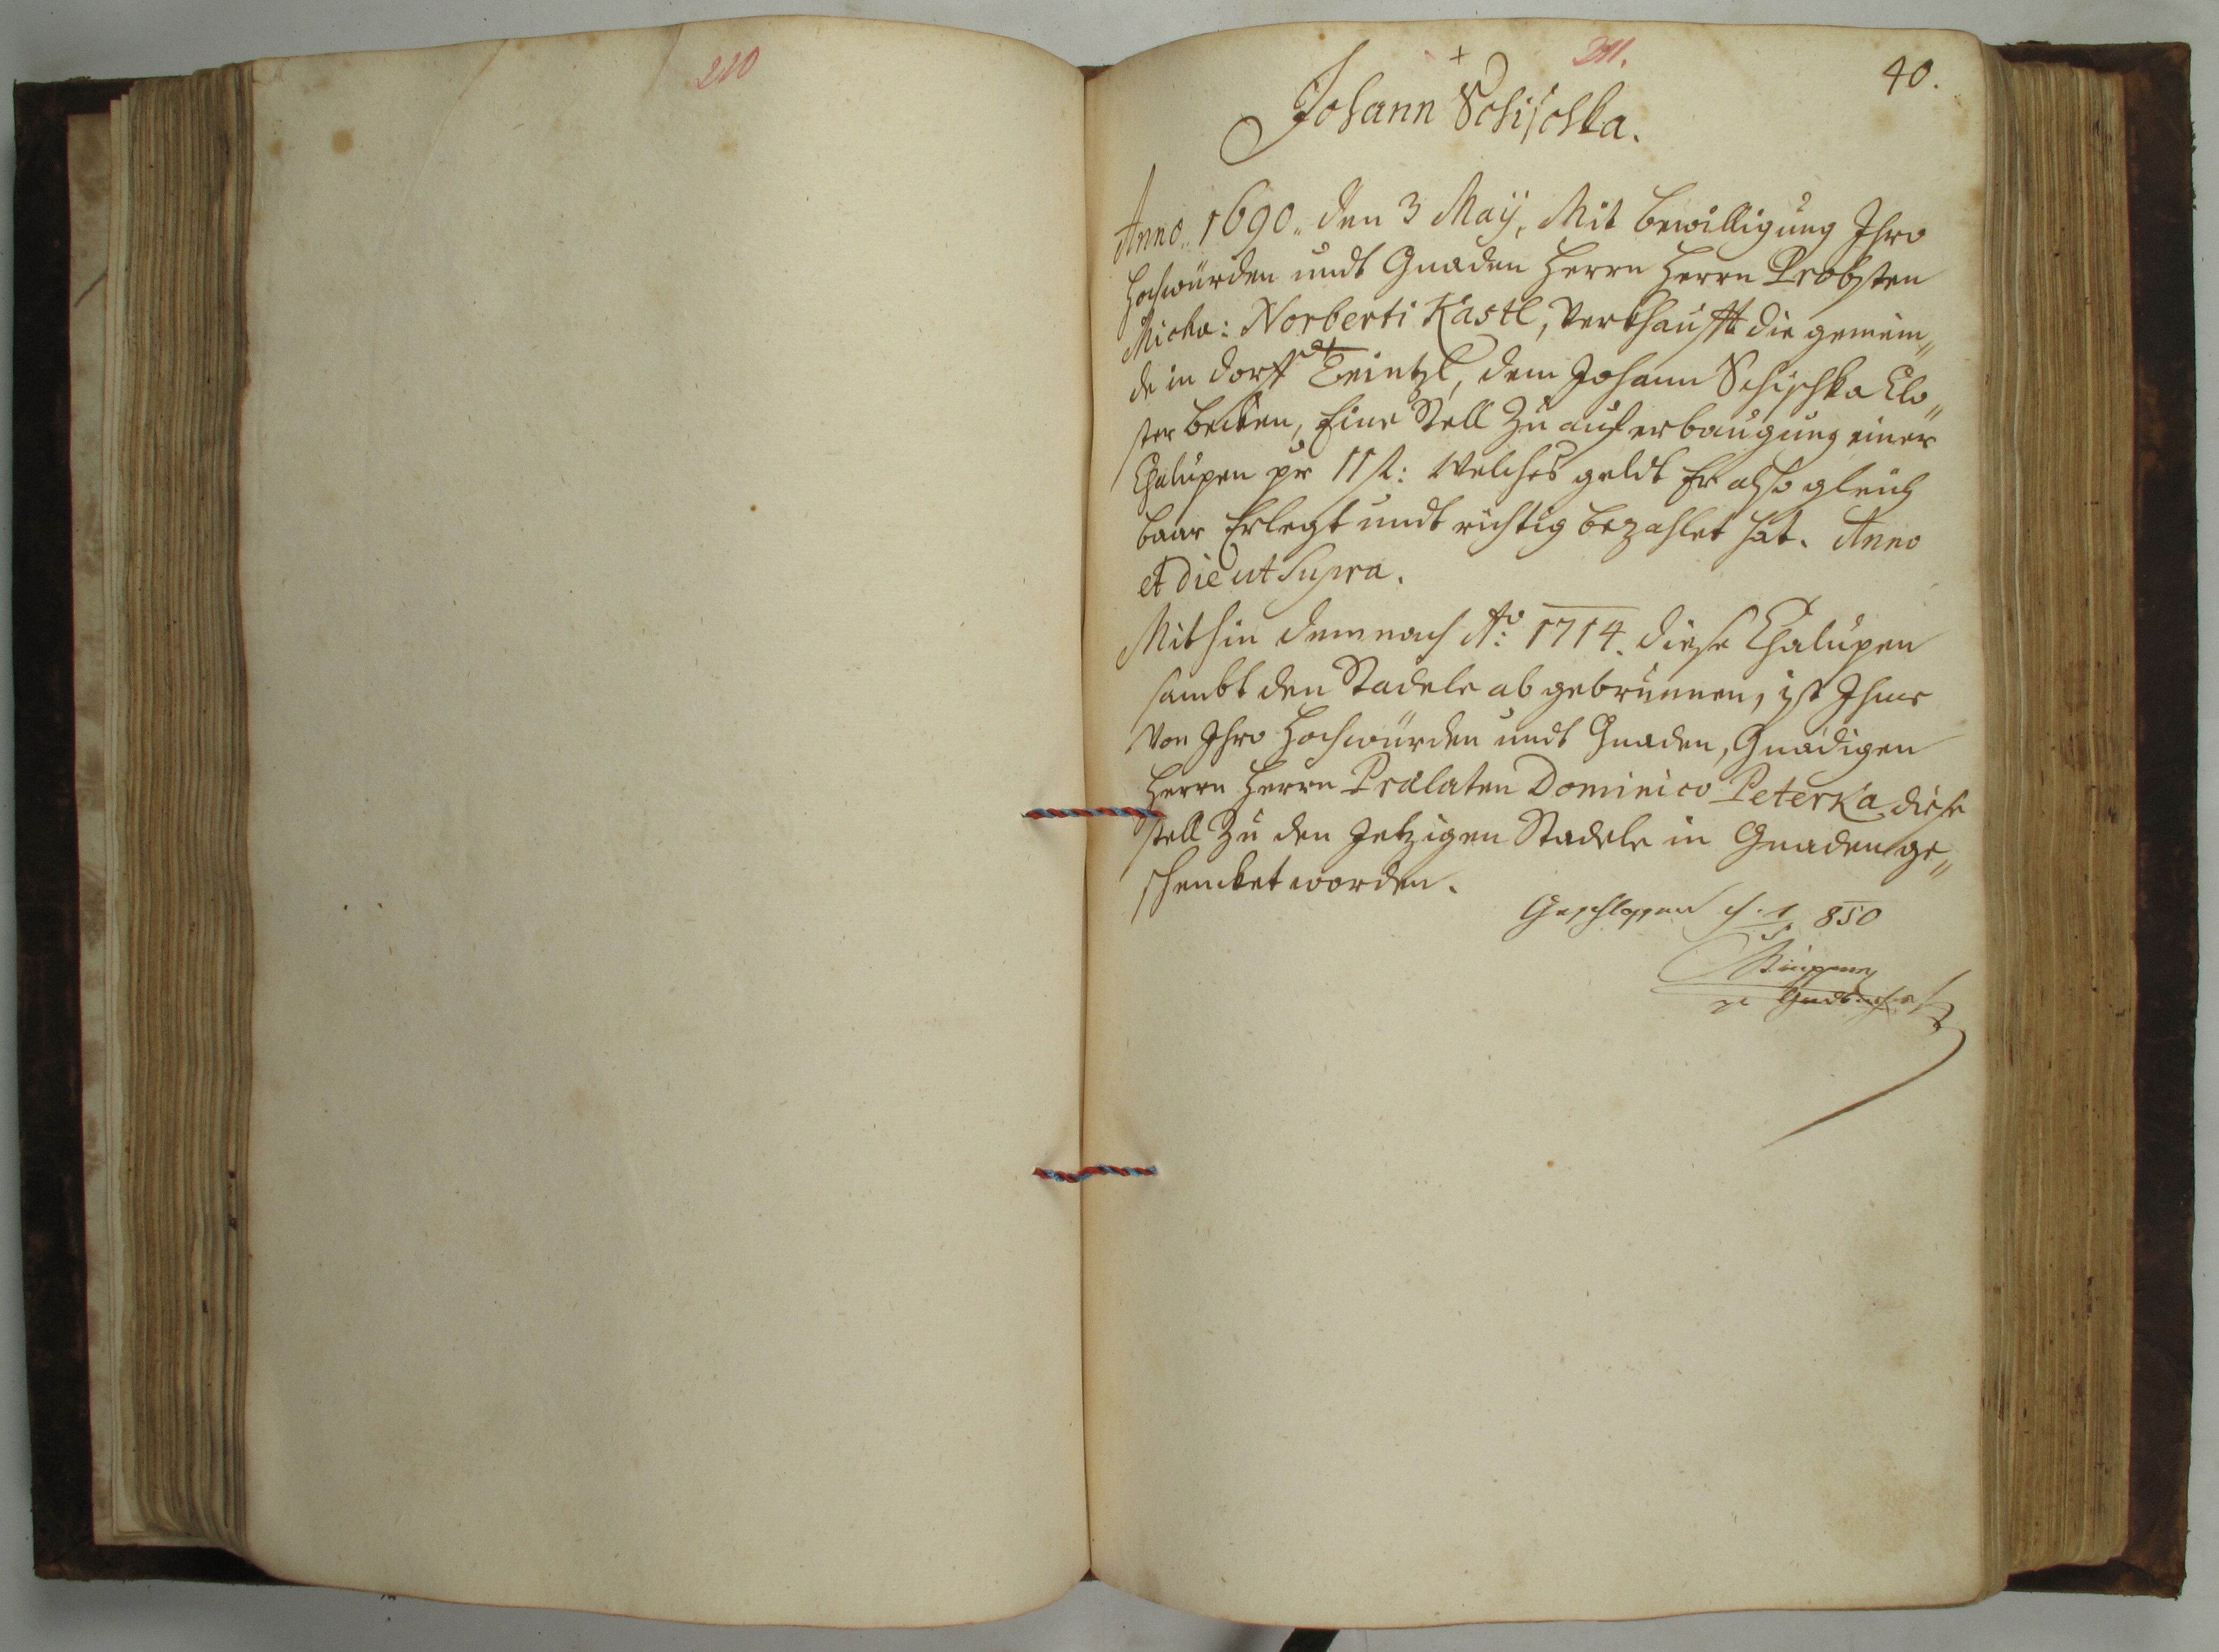 210
211.
40.
Johann Schischka.
Anno 1690 den 3 Maÿ, Mit bewilligung Ihro
Hochwürden undt Gnaden Herrn Herrn Probsten
Micha: Norberti Kastl, Verkhaufft die gemein„
de in dorff Teintzl, dem Johann Schischka Clo„
ster becken, Eine Stell Zu auferbaugung einer
Chalupen pr 11 f: Welches geldt Er also gleich
baar Erlegt undt richtig bezahlet hat. Anno
et die ut Supra.
Mithin demnach Aõ: 1714. diese Chalupen
sambt den Stadele ab gebrunnen, ist Ihme
Von Ihro Hochwürden undt Gnaden, Gnädigen
Herrn Herrn Prälaten Dominico Peterka diese
stell Zu den Jetzigen Stadele in Gnaden ge„
schencket worden.
Geschlossen 850